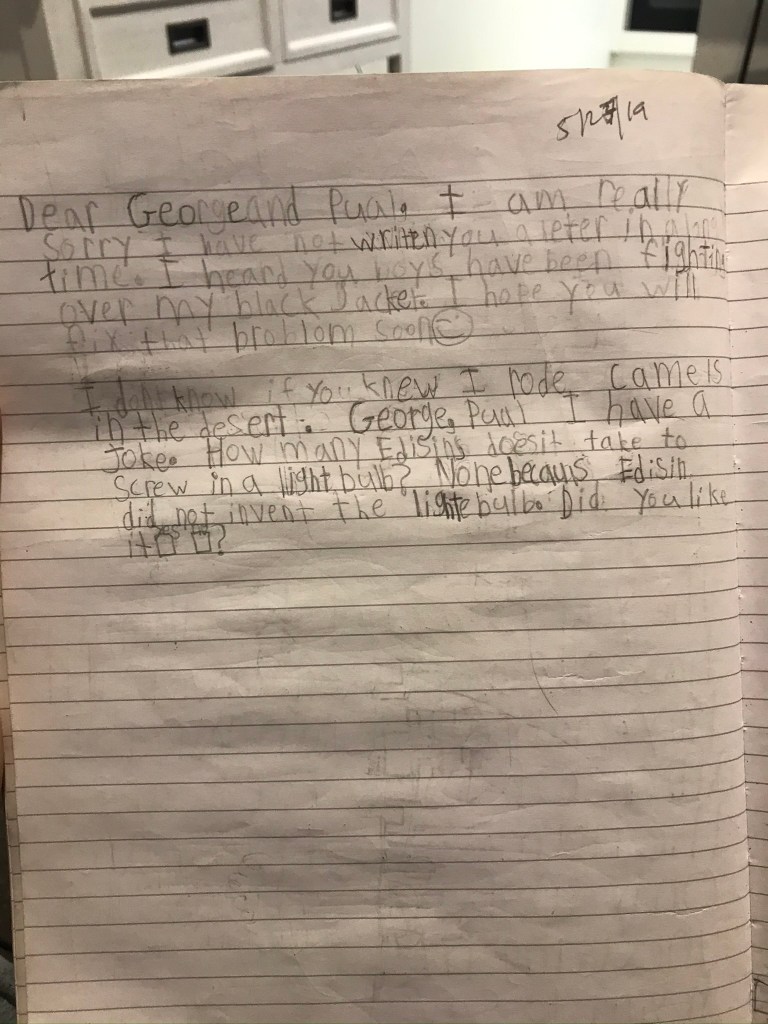 Dear George and Pual. I am really
sorry I have not written you a leter in a long
time. I heard you boys have been fighting
over my black Jacket. I hope you will
fix that broblom soon
I dont know if you knew I rode camels
in the desert. George, Pual I have a
Joke. How many Edisins doesit take to
screw in a light bulb? None becaus Edisin
did not invent the lighte bulb. Did you like
it ?